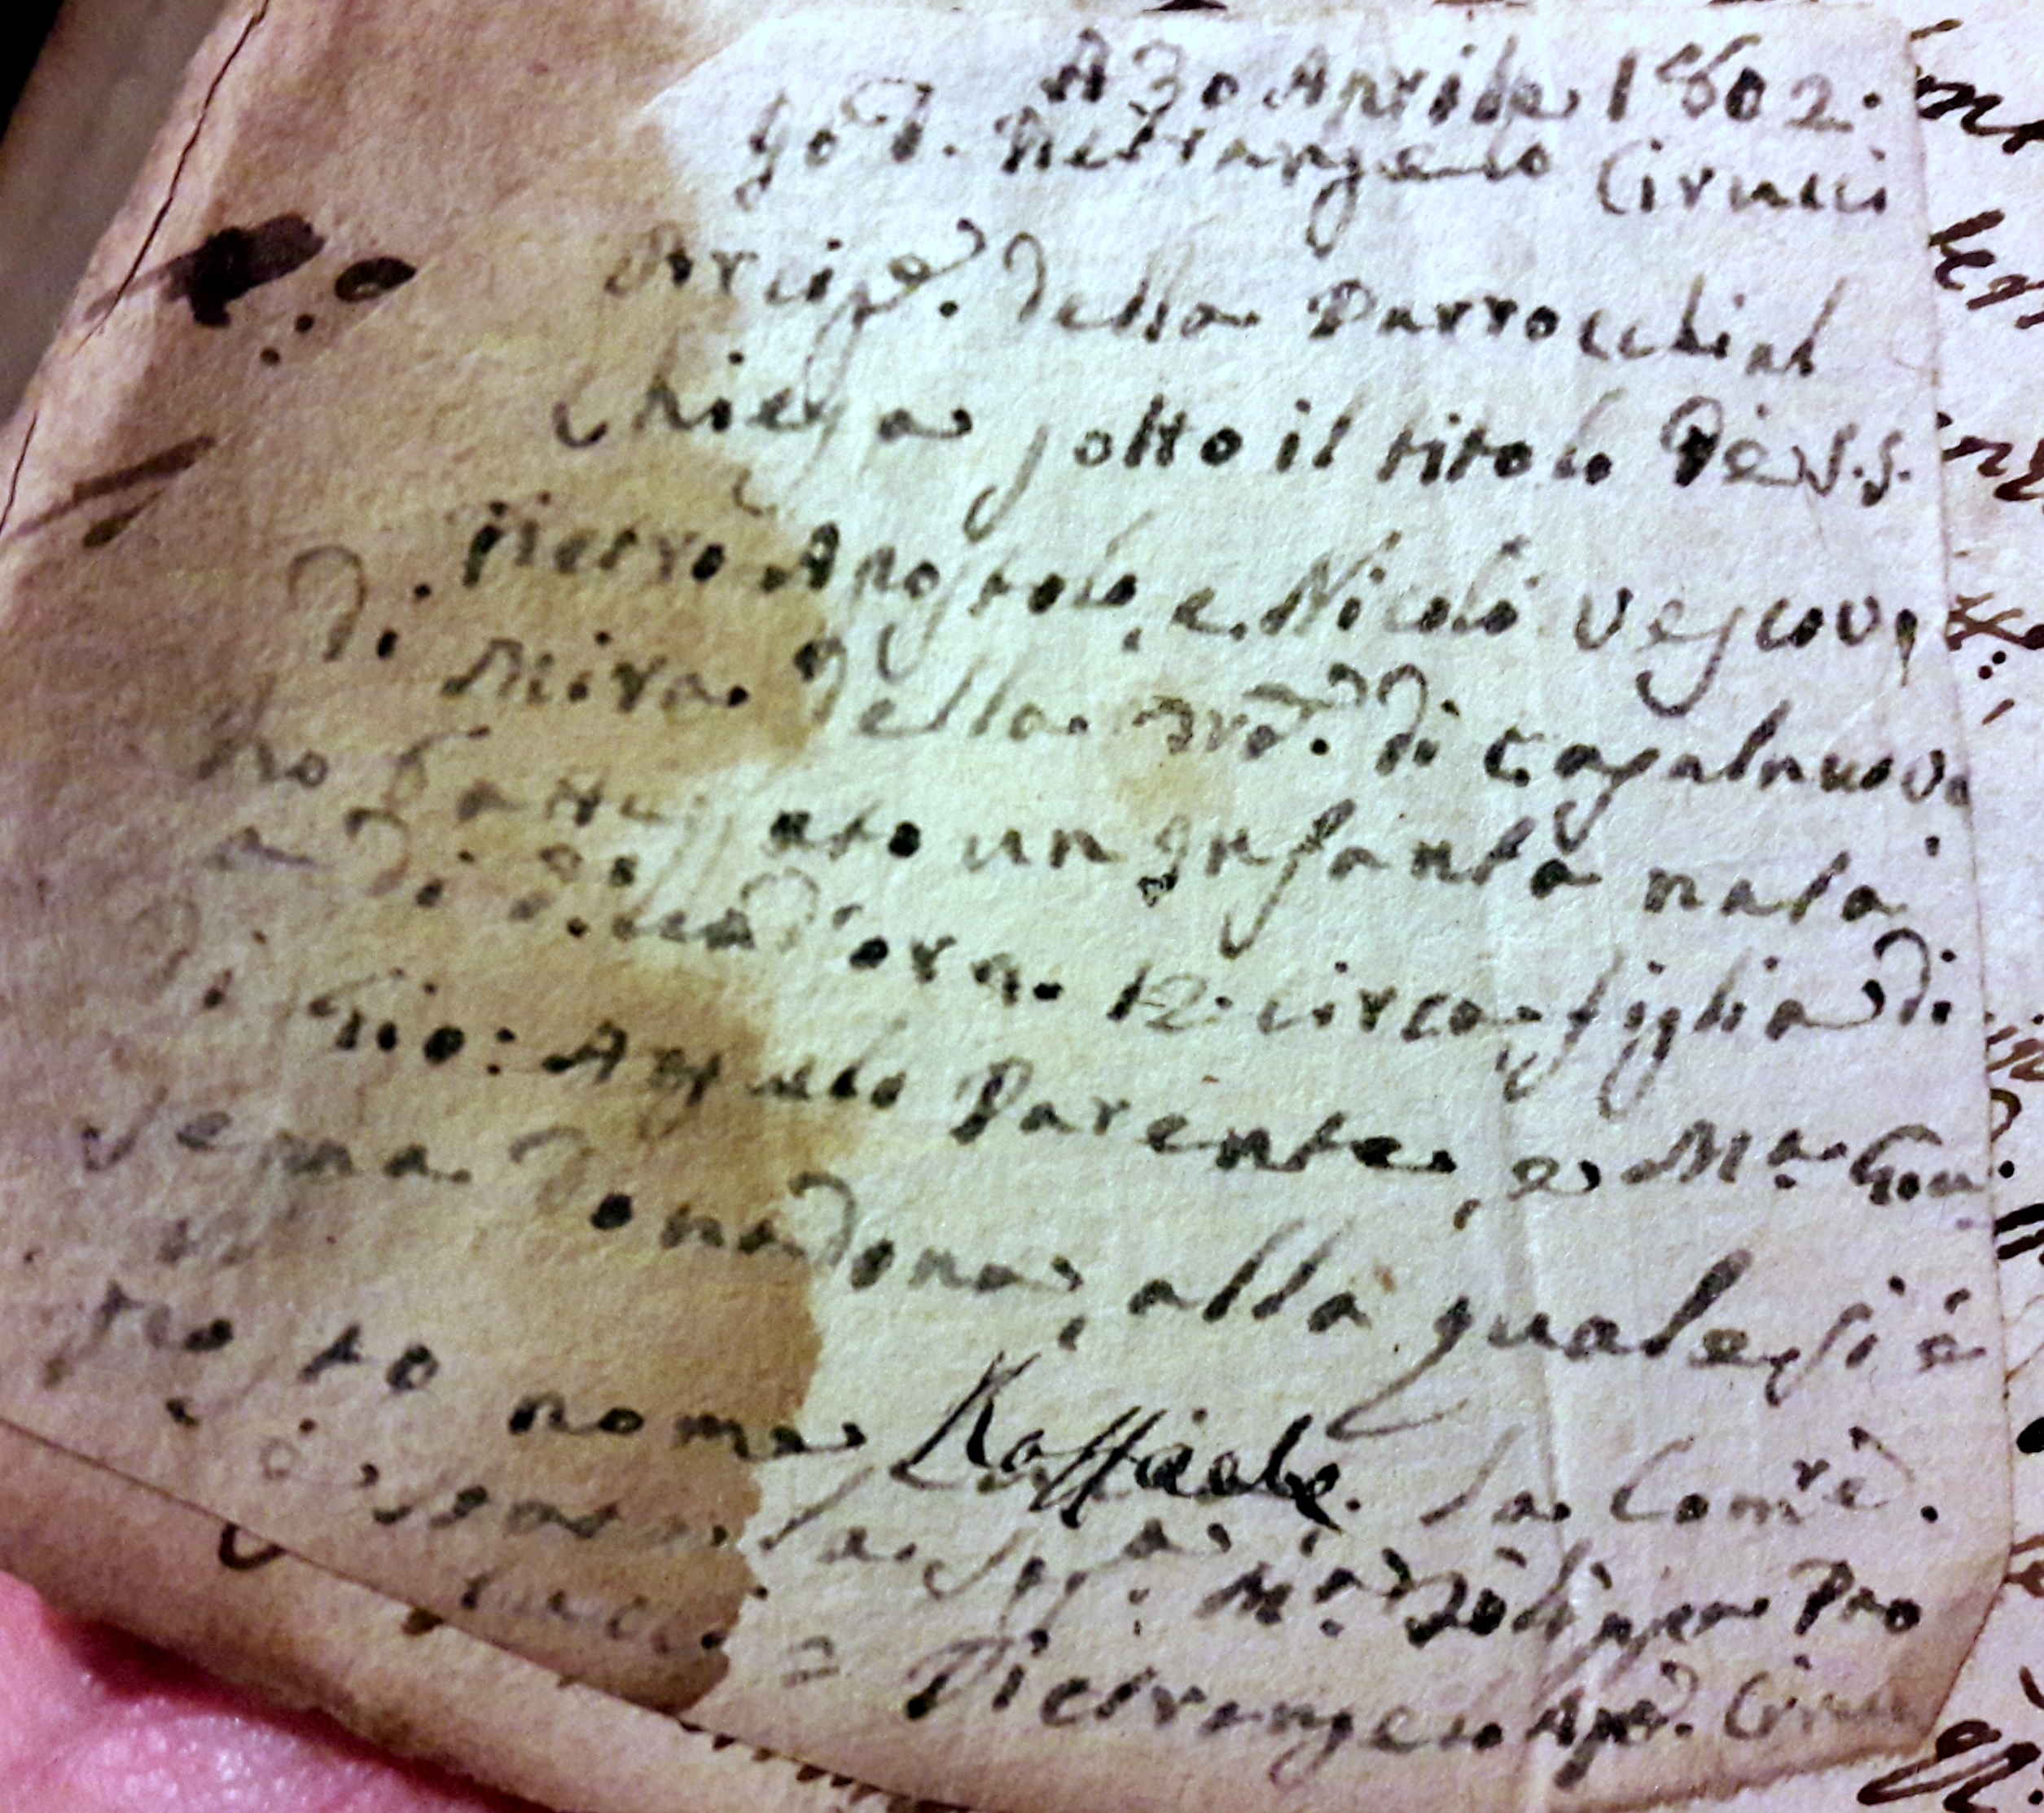 A 30 Aprile 1802.
Io D. Pietrangelo Cirucci
Arcip.e della Parrocchial
Chiesa sotto il titolo de S.S.
Pietro Apostolo, e Nicolò Vescovi
di Mira della di Casalnuovo
ho battezzato un Infanta nata
a di d.o ad ora 12 circa figlia di
di Gio: Angelo Parente, e M.a Gio
Donadona, alla quale si è
posto nome Raffaele. La Com.re
è stata la Sig.a M.a Pao
lucci
= Pietrangelo Cirucci